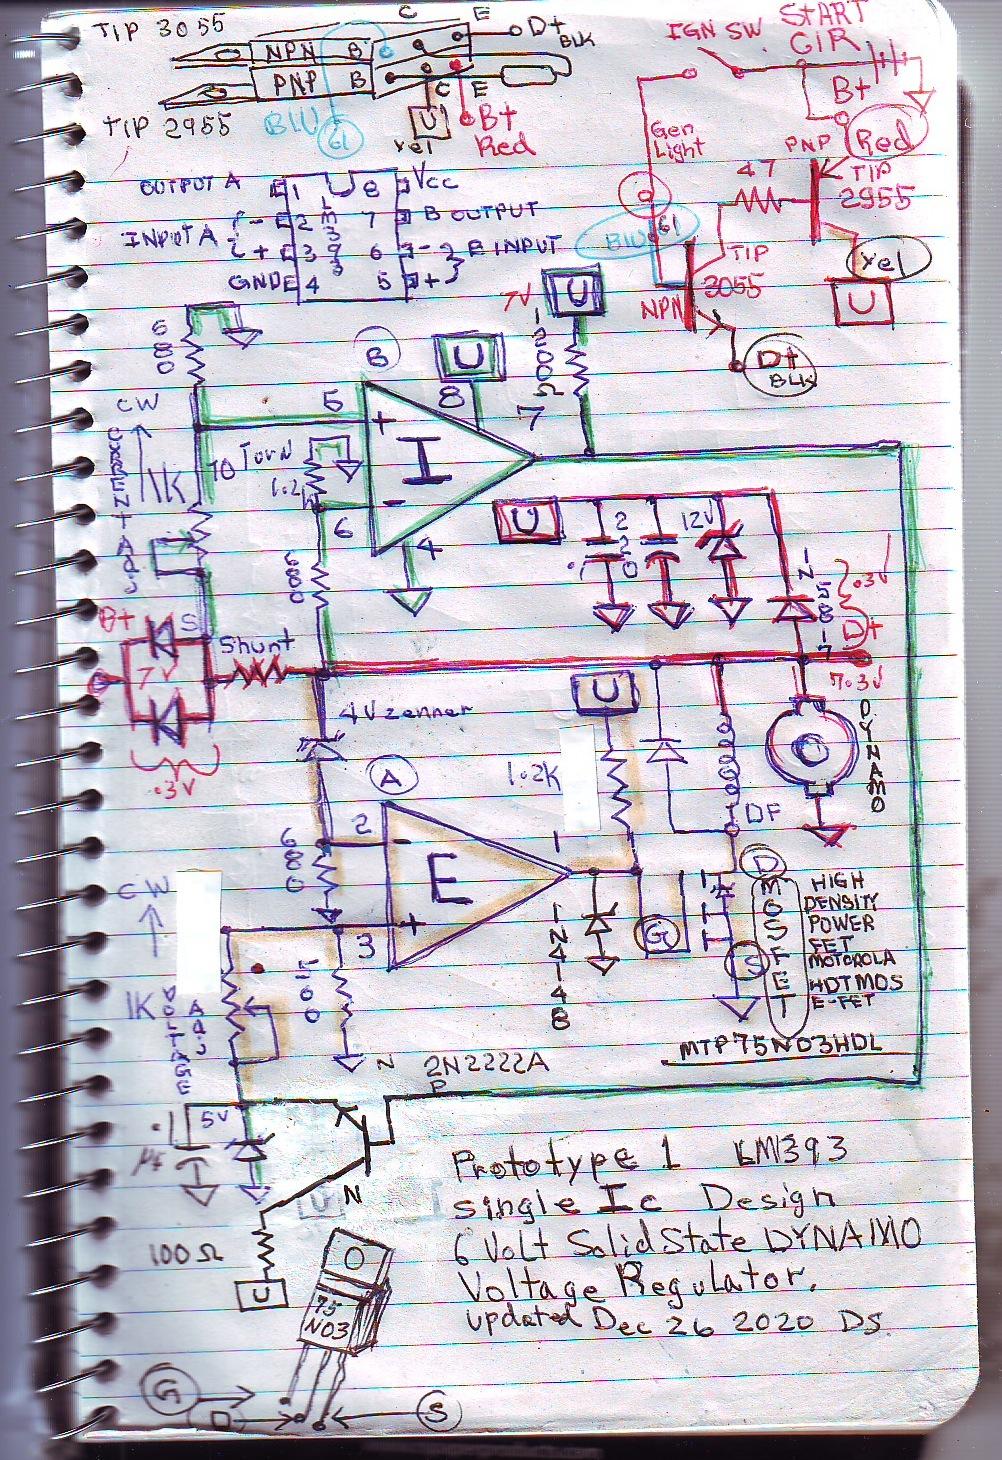 TIP 3055
C E
NPN B
D+
BLK
PNP B
C E
TIP 2955
BLU
61
U
Yel
B+
Red
IGN SW
START
CIR
B+
Red
Gen
Light
PNP
47
TIP
2955
BLU
61
TIP
3055
NPN
Yel
U
D+
BLK
OUTPUT A
1 8
Vcc
LM393
2 7
B OUTPUT
INPUT A
-
+
3 6
- B INPUT
+
GND
4 5
680
CW
CURRENT Adj
1K
10 Turn
1.2K
B
5
+
I
-
6
4
8
U
7V
U
1200Ω
7
680
U
220
12V
IN5817
.3V
D+
7.3V
B+
S
7V
.3V
Shunt
4V zenner
U
1.2K
DYNAMO
DF
A
2
-
E
+
3
1
680
CW
1K
VOLTAGE Adj
IN4148
G
D
S
MOSFET
HIGH
DENSITY
POWER
FET
MOTOROLA
HDTMOS
E-FET
MTP75N03HDL
N
2N2222A
P
N
.1
µf
5V
100Ω
U
U
75
N03
G
D
S
Prototype 1 LM393
single Ic Design
6 Volt Solid State DYNAMO
Voltage Regulator.
updated Dec 26 2020 DS